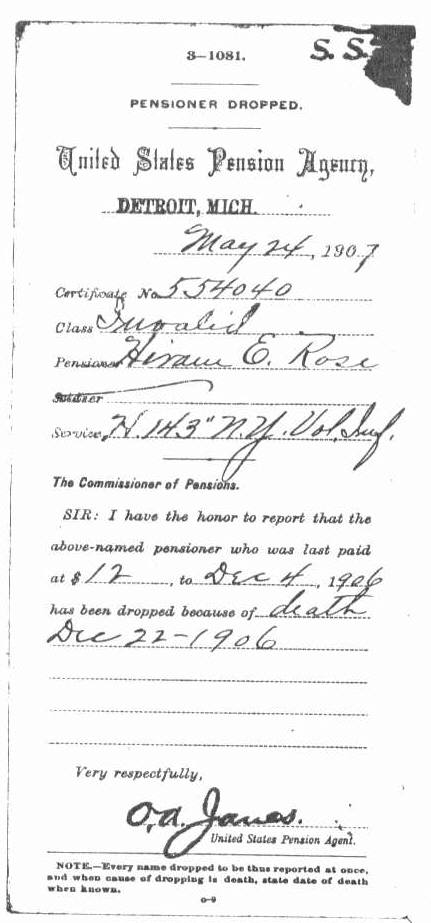 3-1081.
S. S.
PENSIONER DROPPED.
United States Pension Agency,
DETROIT, MICH.
May 24, 1907
Certificate No 554040
Class Invalid
Pensioner Hiram E. Rose
Soldier
Service, H. 143" N.Y. Vol. Inf.
The Commissioner of Pensions.
SIR: I have the honor to report that the
above-named pensioner who was last paid
at $ 12, to Dec 4, 1906
has been dropped because of death
Dec 22-1906
Very respectfully,
O.A. Janes.
United States Pension Agent.
NOTE.—Every name dropped to be thus reported at once,
and when cause of dropping is death, state date of death
when known.
6-9